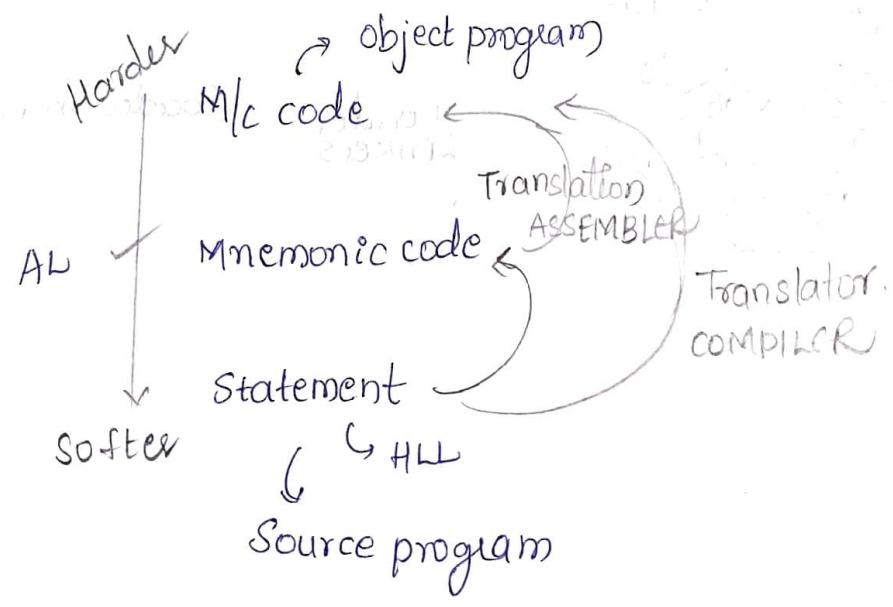 Object program
Harder
M/c code
Translation
ASSEMBLER
AL
Mnemonic code
Translator.
COMPILER
Statement
Softer
HLL
Source program